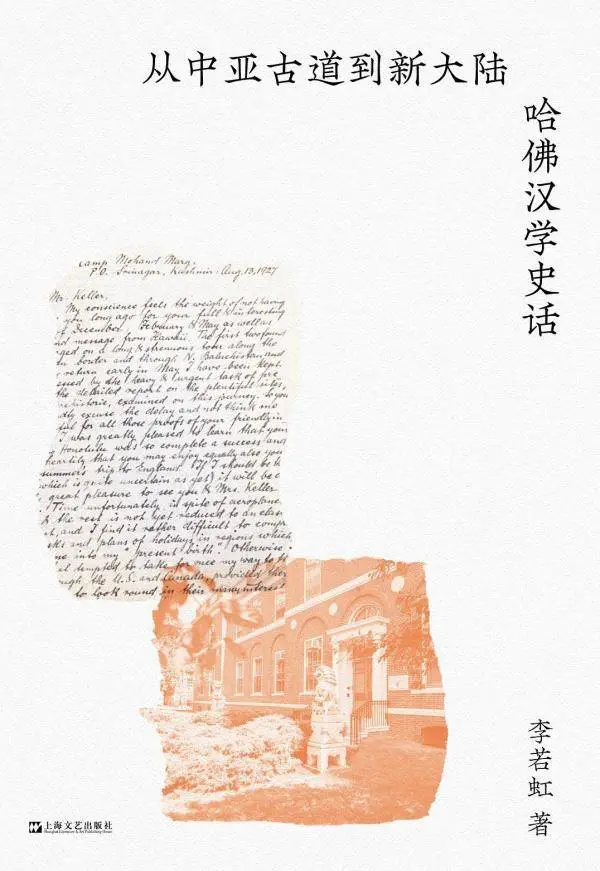 从中亚古道到新大陆
哈佛汉学史话
Camp Mohand Marg,
P.O. Srinagar, Kashmir: Aug. 13, 1927
Mr. Keller,
My conscience feels the weight of not having
you long ago for your full & interesting
of December, February & May as well as
message from Hawaii. The first two found
on a long & strenuous tour along the
border and through N. Baluchistan, and
return early in May I have been kept
by the heavy & urgent task of
the detailed report on the plentiful sites,
examined on this journey. So you
excuse the delay and not think me
for all those proofs of your friendly in
I was greatly pleased to learn that your
Honolulu was so complete a success and
heartily that you may enjoy equally also your
summer's trip to England. If I should be
which is quite uncertain as yet) it will be a
great pleasure to see you & Mrs. Keller
Time unfortunately, in spite of aeroplane
& the rest is not yet reduced to an
, and I find it rather difficult to
and plans of holidays in regions which
into my "present birth". Otherwise
tempted to take for once my way to
the U.S. and Canada, provided they
to look round in their many interest
李若虹 著
上海文艺出版社
Shanghai Literature & Art Publishing House